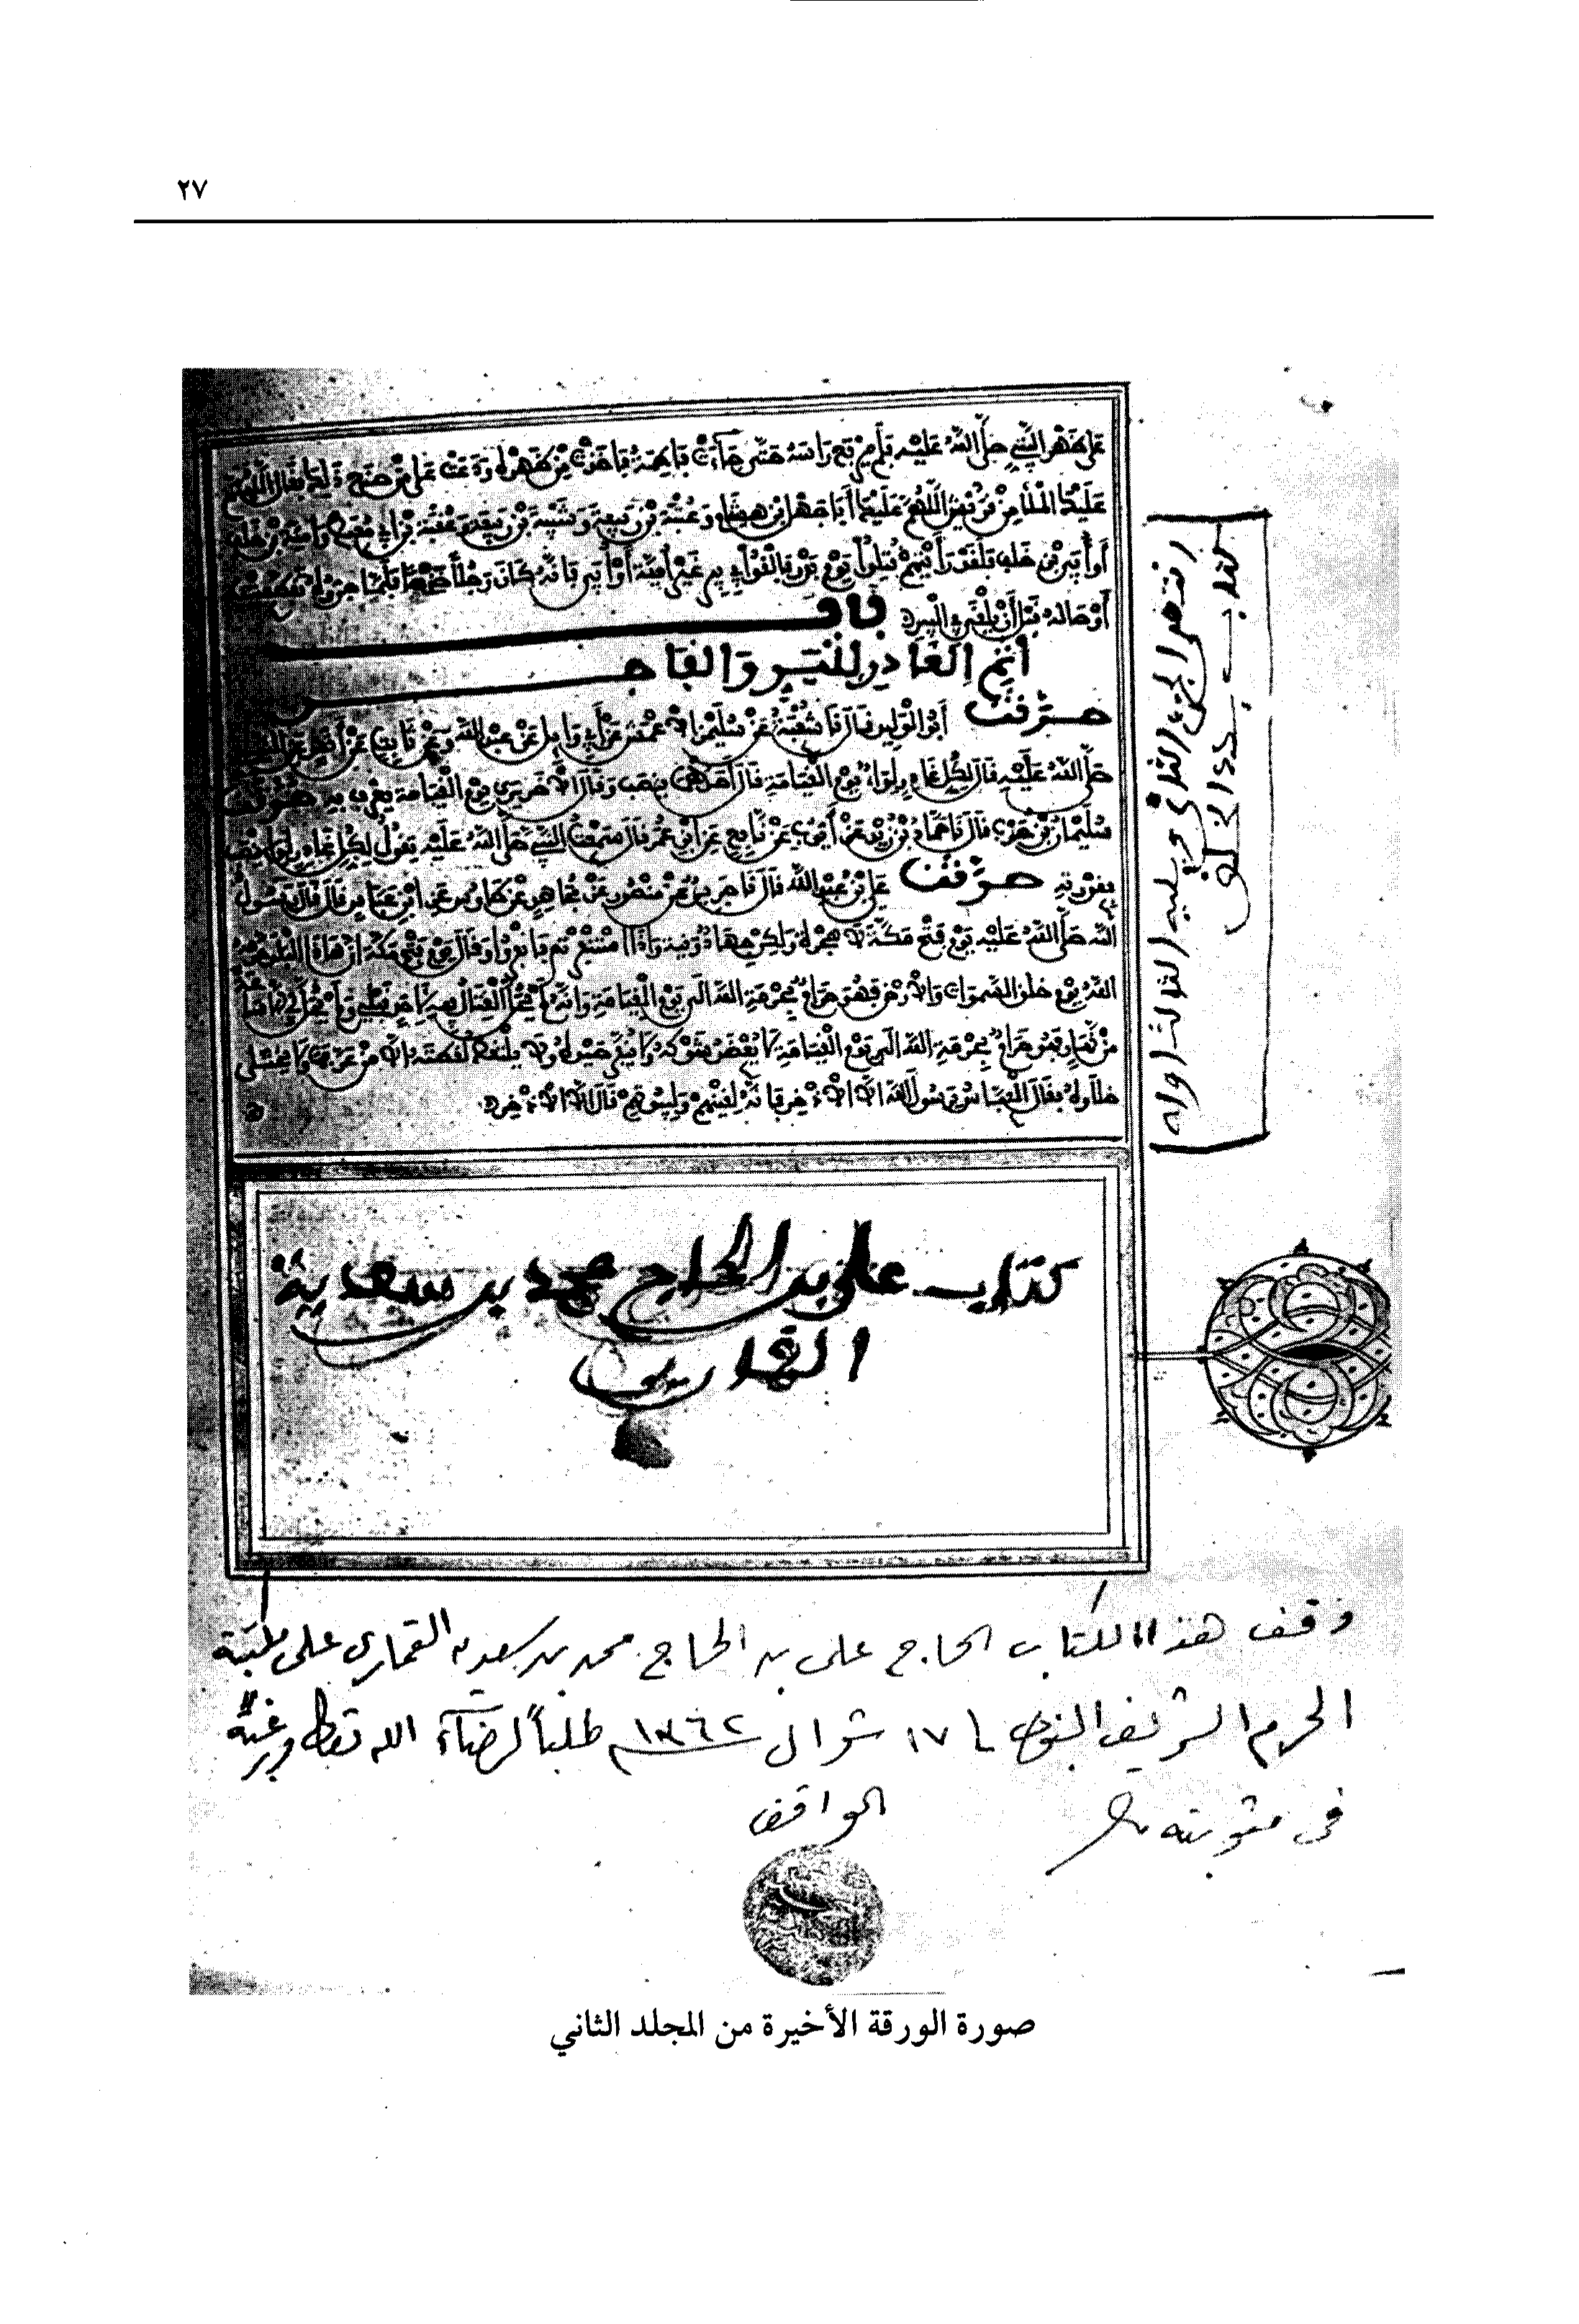 ٢٧
على ظهر النبي صلى الله عليه فلم يرفع راسه حتى جاءت فاطمة فاخذت من ظهره ودعت على من صنع ذلك فقال اللهم
عليك الملأ من قريش اللهم عليك أبا جهل ابن هشام وعتبة بن ربيعة وشيبة بن ربيعة وعقبة بن أبي معيط وأمية بن خلف
أو أبي بن خلف فلقد رأيتهم قتلوا يوم بدر فألقوا في بير غير أمية أو أبي فإنه كان رجلا ضخما فلما جروه تقطعت
أوصاله قبل أن يلقى في البير
باب
إثم الغادر للبر والفاجر
حدثنا أبو الوليد قال نا شعبة عن سليمان الأعمش عن أبي وايل عن عبد الله وعن ثابت عن أنس عن النبي
صلى الله عليه قال لكل غادر لواء يوم القيامة قال أحدهما ينصب وقال الآخر يرى يوم القيامة يعرف به حدثنا
سليمان بن حرب قال نا حماد بن زيد عن أيوب عن نافع عن ابن عمر قال سمعت النبي صلى الله عليه يقول لكل غادر لواء ينصب
بغدرته حدثنا علي بن عبد الله قال نا جرير عن منصور عن مجاهد عن طاوس عن ابن عباس قال قال رسول
الله صلى الله عليه يوم فتح مكة لا هجرة ولكن جهاد ونية وإذا استنفرتم فانفروا وقال يوم فتح مكة إن هذا البلد حرمه
الله يوم خلق السموات والأرض فهو حرام بحرمة الله إلى يوم القيامة وإنه لم يحل القتال فيه لأحد قبلي ولم يحل لي إلا ساعة
من نهار فهو حرام بحرمة الله إلى يوم القيامة لا يعضد شوكه ولا ينفر صيده ولا يلتقط لقطته إلا من عرفها ولا يختلى
خلاه فقال العباس يرسول الله إلا الإذخر فإنه لقينهم ولبيوتهم قال إلا الإذخر
انتهى الجزء الثاني ويليه الثالث اوله
كتاب بدء الخلق
كتاب علي بن الحاج محمد بن سعدية
القماري
وقف هذا الكتاب الحاج علي بن الحاج محمد بن سعدية القماري على مكتبة
الحرم الشريف النبوي في ١٧ شوال ١٣٦٢ طلباً لرضاء الله تعالى ورغبة
في مثوبته
الواقف
صورة الورقة الأخيرة من المجلد الثاني